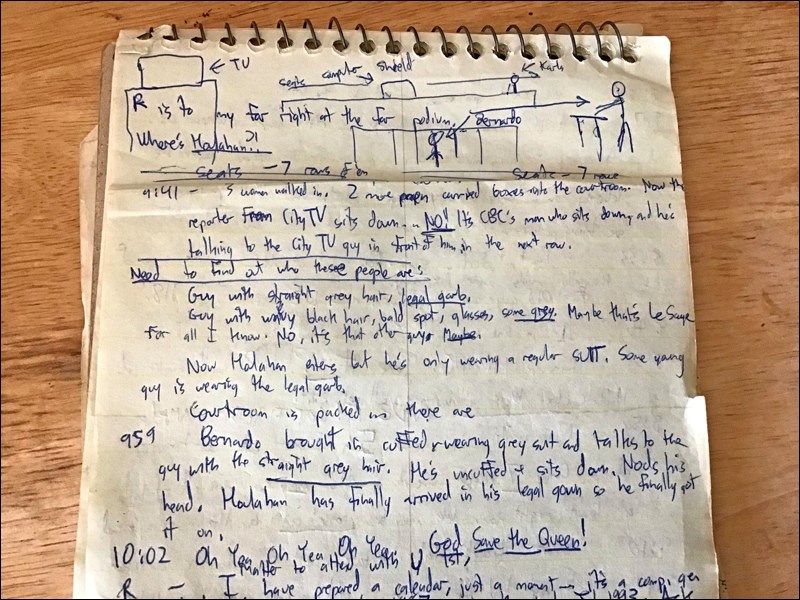 TV
seats computer shield Karla
R is to my far right at the far podium. Bernardo
Where's Halahan?!
seats - 7 rows seats - 7 rows
9:41 - 5 women walked in. 2 more carried boxes into the courtroom. Now the
reporter from CityTV sits down... NO! Its CBC's man who sits down, and he's
talking to the City TV guy in front of him, in the next row.
Need to find out who these people are:
Guy with straight grey hair, legal garb.
Guy with wavy black hair, bald spot, glasses, some grey. Maybe that's Le Sage
for all I know. No, it's that other guy. Maybe.
Now Halahan enters but he's only wearing a regular suit. Some young
guy is wearing the legal garb.
Courtroom is packed there are
959 Bernardo brought in cuffed & wearing grey suit and talks to the
guy with the straight grey hair. He's uncuffed & sits down. Nods his
head. Halahan has finally arrived in his legal gown so he finally got
it on.
10:02 Oh Yea, Oh Yea, Oh Yea, God Save the Queen!
Matter to attend with 1st,
R - I have prepared a calendar, just a moment - it's a